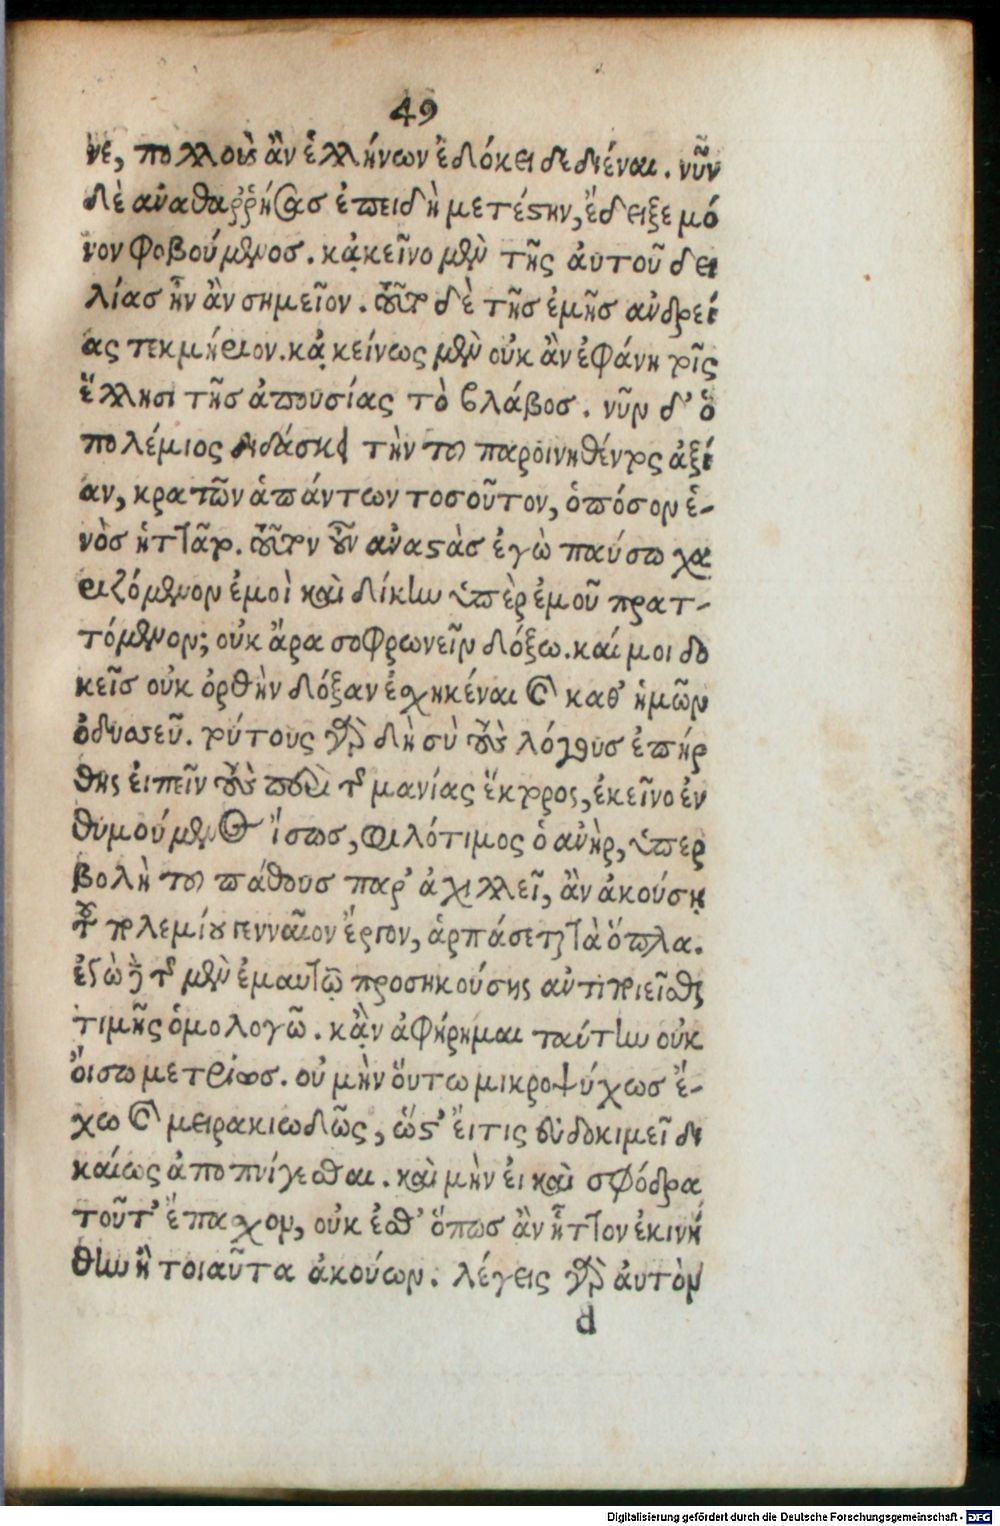 49
νε, πολλοὺς ἂν ἑλλήνων ἐδόκει δεδιέναι. νῦν
δὲ αναθαῤῥήσας ἐπειδὴ μετέστην, ἔδειξε μό
νον φοβούμενος. κᾀκεῖνο μὲν τῆς ἀυτοῦ δει
λίας ἦν ἂν σημεῖον. τοῦτο δὲ τῆς ἐμῆς ανδρεί
ας τεκμήριον. κᾀκείνως μὲν οὐκ ἂν ἐφάνη τοῖς
ἕλλησι τῆς ἀπουσίας τὸ βλάβος. νῦν δ' ὁ
πολέμιος διδάσκει τὴν του παροινηθέντος ἀξί
αν, κρατῶν ἁπάντων τοσοῦτον, ὁπόσον ἑ-
νὸς ἡττᾶτο. τοῦτον οὖν αναστὰς ἐγὼ παύσω χα
ριζόμενον ἐμοὶ καὶ δίκην ὑπὲρ ἐμοῦ πρατ-
τόμενον; οὐκ ἄρα σοφρωνεῖν δόξω. καί μοι δο
κεῖς οὐκ ὀρθὴν δόξαν ἐσχηκέναι καθ' ἡμῶν
ὀδυσσεῦ. τούτους γὰρ δὴ σὺ τοὺς λόγους ἐπήρ
θης ἐιπεῖν τοὺς περὶ τῆς μανίας ἕκτορος, ἐκεῖνο ἐν
θυμούμενος ἴσως, φιλότιμος ὁ ανὴρ, ὑπερ
βολὴ του πάθους παρ' ἀχιλλεῖ, ἂν ἀκούσῃ
τοῦ πολεμίου γενναῖον ἔργον, ἁρπάσεται τὰ ὅπλα.
ἐγὼ δὲ τῆς μὲν ἐμαυτῷ προσηκούσης αντιποιεῖσθαι
τιμῆς ὁμολογῶ. κᾂν ἀφήρημαι ταύτην οὐκ
ὄισω μετρίως. οὐ μὴν ὅυτω μικροψύχως ἔ-
χω μειρακιωδῶς, ὥστ' ἔιτις ευδοκιμεῖ δι
καίως ἀποπνίγεσθαι. καὶ μὴν ἐι καὶ σφόδρα
τοῦτ' ἔπασχον, οὐκ ἔσθ' ὅπως ἂν ἧττον ἐκινή
θην ἢ τοιαῦτα ἀκούων. λέγεις γὰρ ἀυτὸν
d
Digitalisierung gefördert durch die Deutsche Forschungsgemeinschaft - DFG